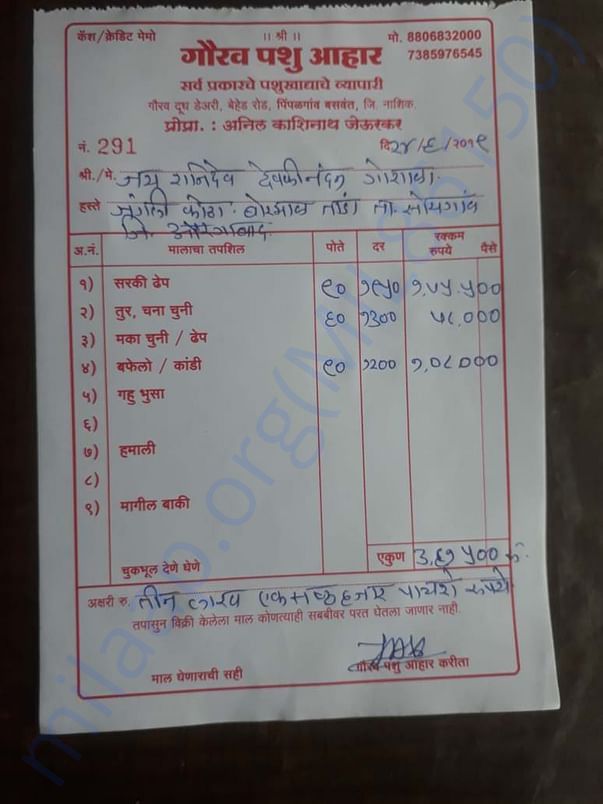 कॅश/क्रेडिट मेमो
।। श्री ।।
मो. 8806832000
7385976545
गौरव पशु आहार
सर्व प्रकारचे पशुखाद्याचे व्यापारी
गौरव दूध डेअरी, बेहेड रोड, पिंपळगांव बसवंत, जि. नाशिक.
प्रोप्रा. : अनिल काशिनाथ जेऊरकर
नं. 291
दि. २४/६/२०१९
श्री./मे. जय शनिदेव देवकीनंदन गोशाळा.
हस्ते जंगली कोठा. बोरमाळ तांडा ता. सोयगांव
जि. औरंगाबाद
अ.नं. मालाचा तपशिल पोते दर रक्कम रुपये पैसे
१) सरकी ढेप ९० १९५० १,७५,५००
२) तुर, चना चुनी ६० १३०० ७८,०००
३) मका चुनी / ढेप
४) बफेलो / कांडी ९० १२०० १,०८०००
५) गहु भुसा
६)
७) हमाली
८)
९) मागील बाकी
चुकभूल देणे घेणे एकुण ३,६१५०० रु.
अक्षरी रु. तीन लाख एकसष्ठ हजार पाचशे रुपये
तपासुन विक्री केलेला माल कोणत्याही सबबीवर परत घेतला जाणार नाही.
माल घेणाराची सही
गौरव पशु आहार करीता